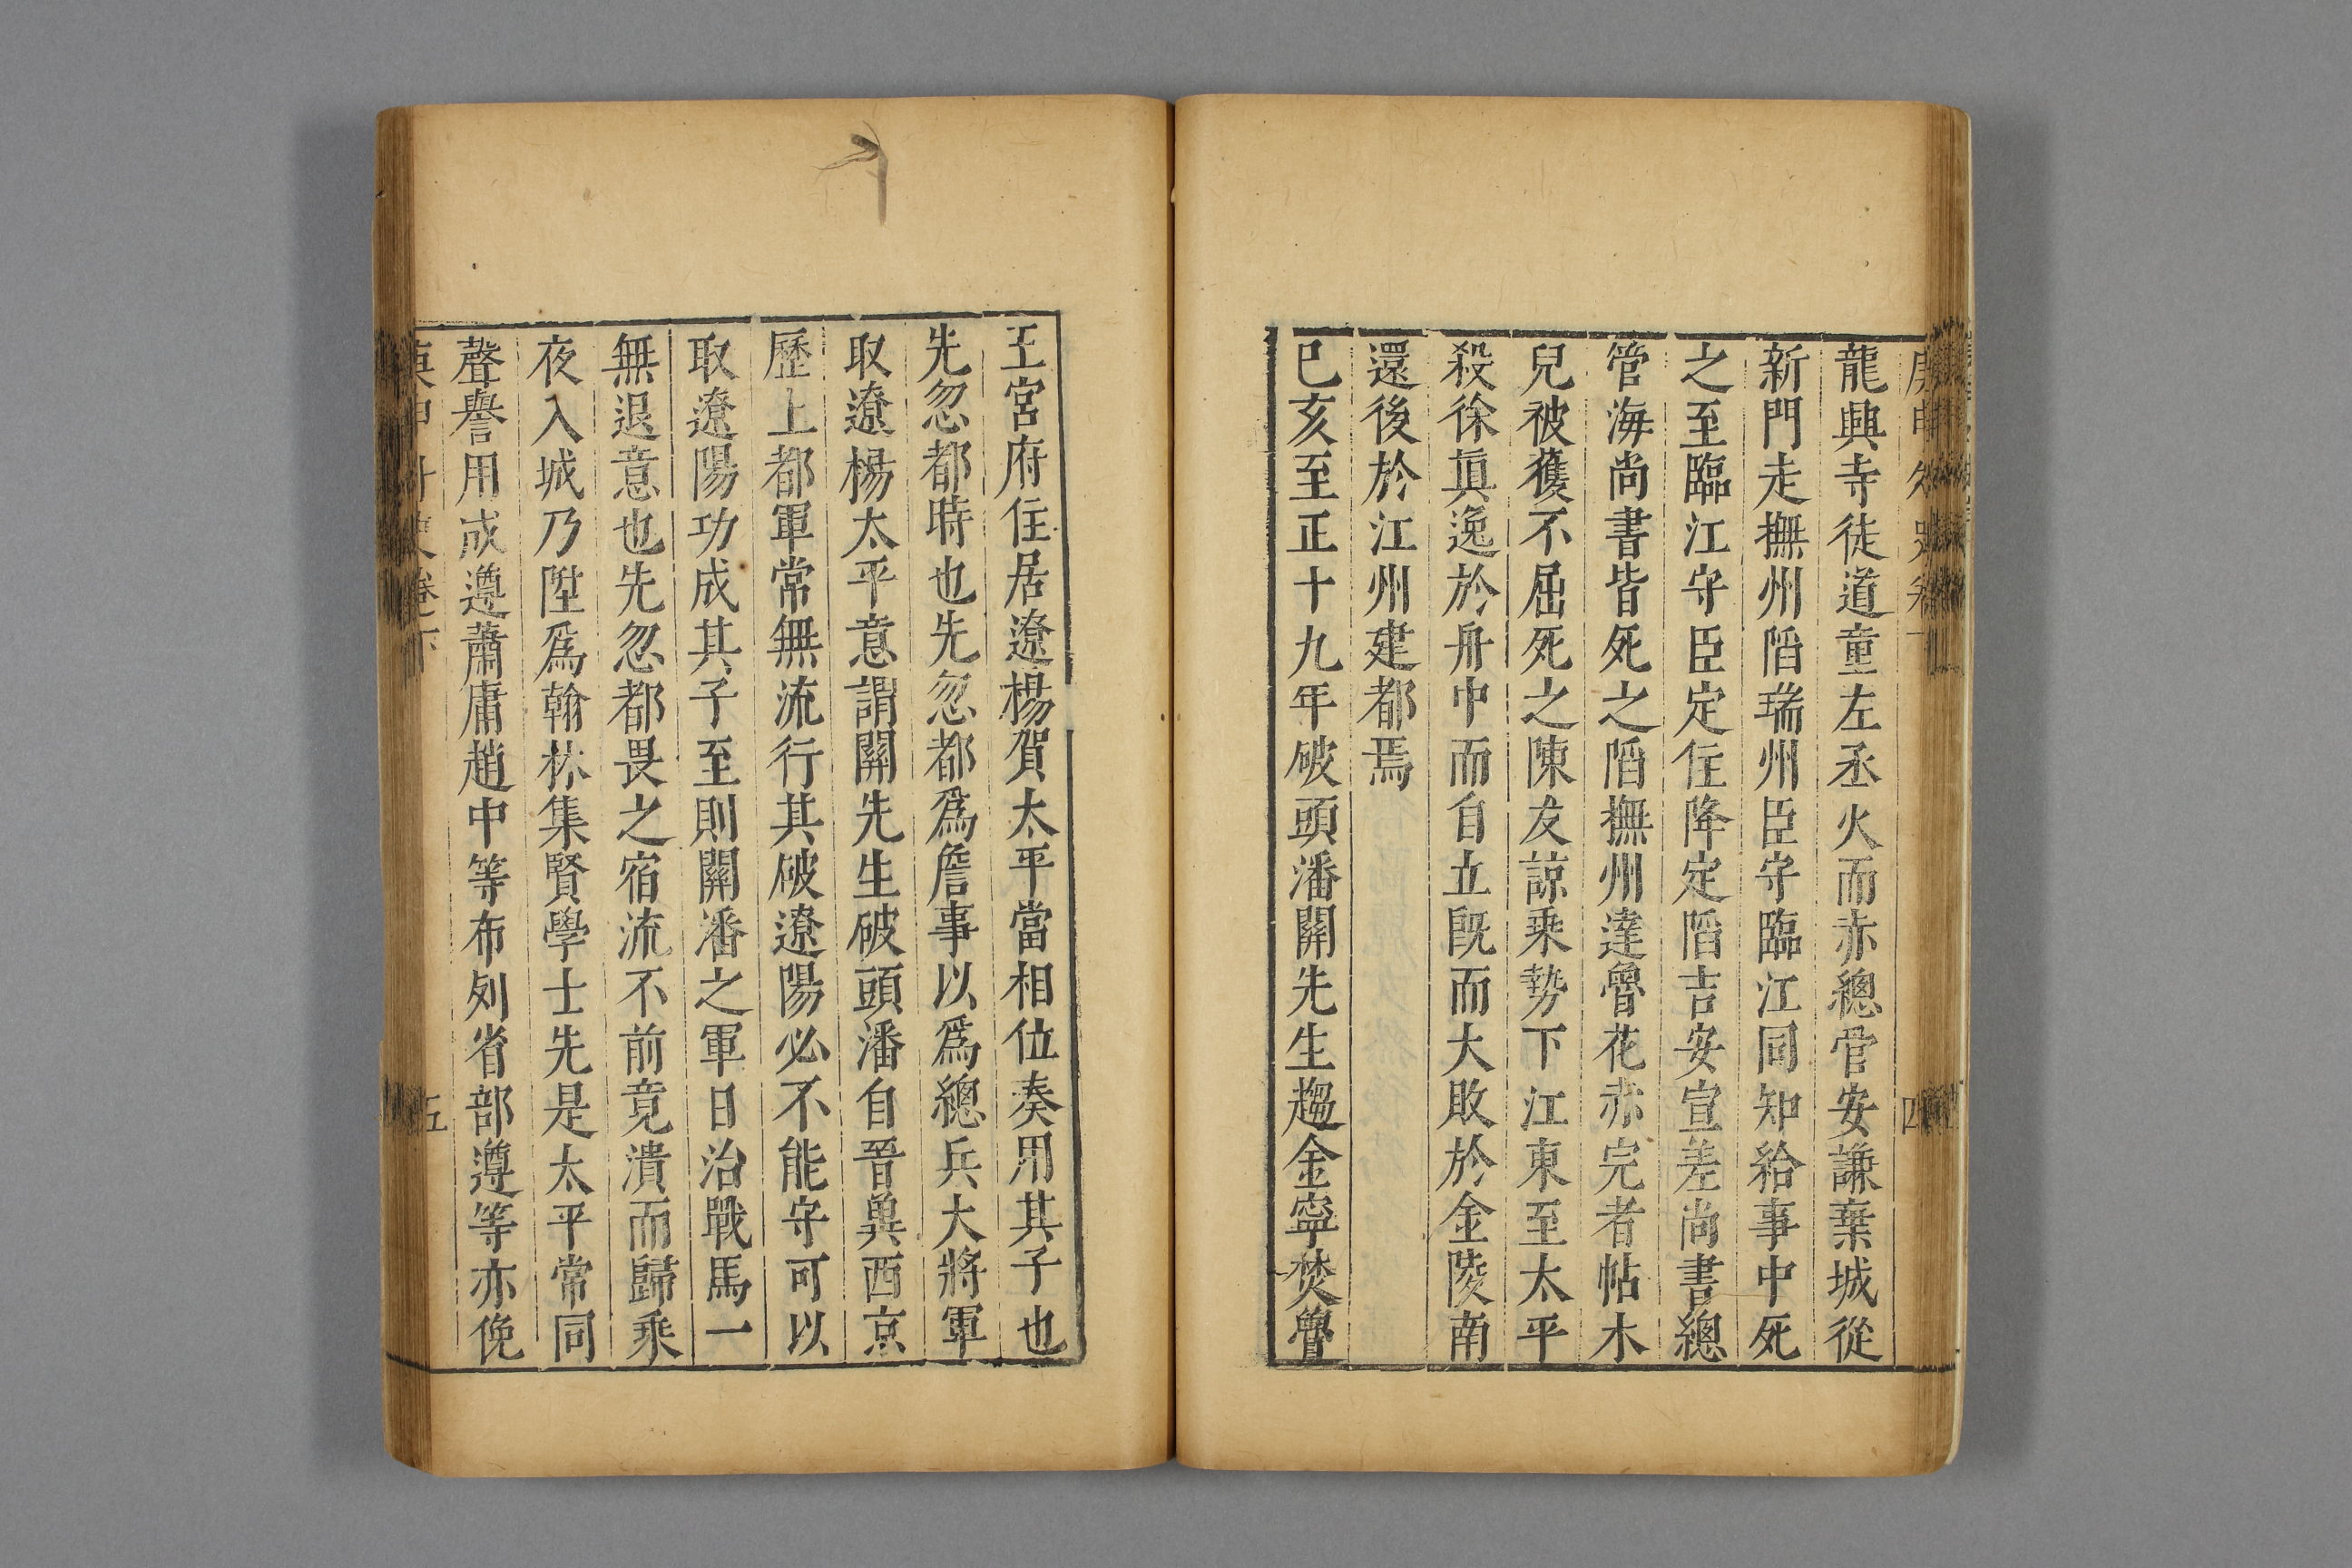 龍興寺徒道童左丞火而赤總管安謙棄城從
新門走撫州䧟瑞州臣守臨江同知給事中死
之至臨江守臣定住降定䧟吉安宣差尚書總
管海尚書皆死之䧟撫州達魯花赤完者帖木
兒被獲不屈死之陳友諒乘勢下江東至太平
殺徐眞逸於舟中而自立旣而大敗於金陵南
還後於江州建都焉
巳亥至正十九年破頭潘關先生趨金寧焚魯
王宮府住居遼楊賀太平當相位奏用其子也
先忽都時也先忽都爲詹事以爲總兵大將軍
取遼楊太平意謂關先生破頭潘自晉冀西京
歷上都軍常無流行其破遼陽必不能守可以
取遼陽功成其子至則關潘之軍日治戰馬一
無退意也先忽都畏之宿流不前竟潰而歸乘
夜入城乃陞爲翰林集賢學士先是太平常同
聲譽用成遵蕭庸趙中等布列省部遵等亦俛
五